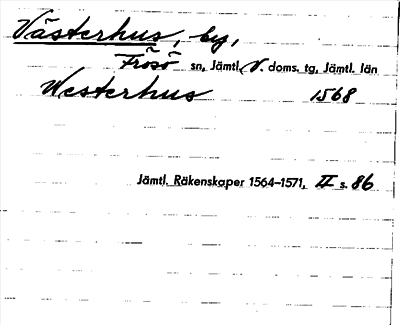 Västerhus, by,
Frösö sn, Jämtl. V. doms. tg, Jämtl. län
Westerhus 1568
Jämtl. Räkenskaper 1564–1571, II s. 86